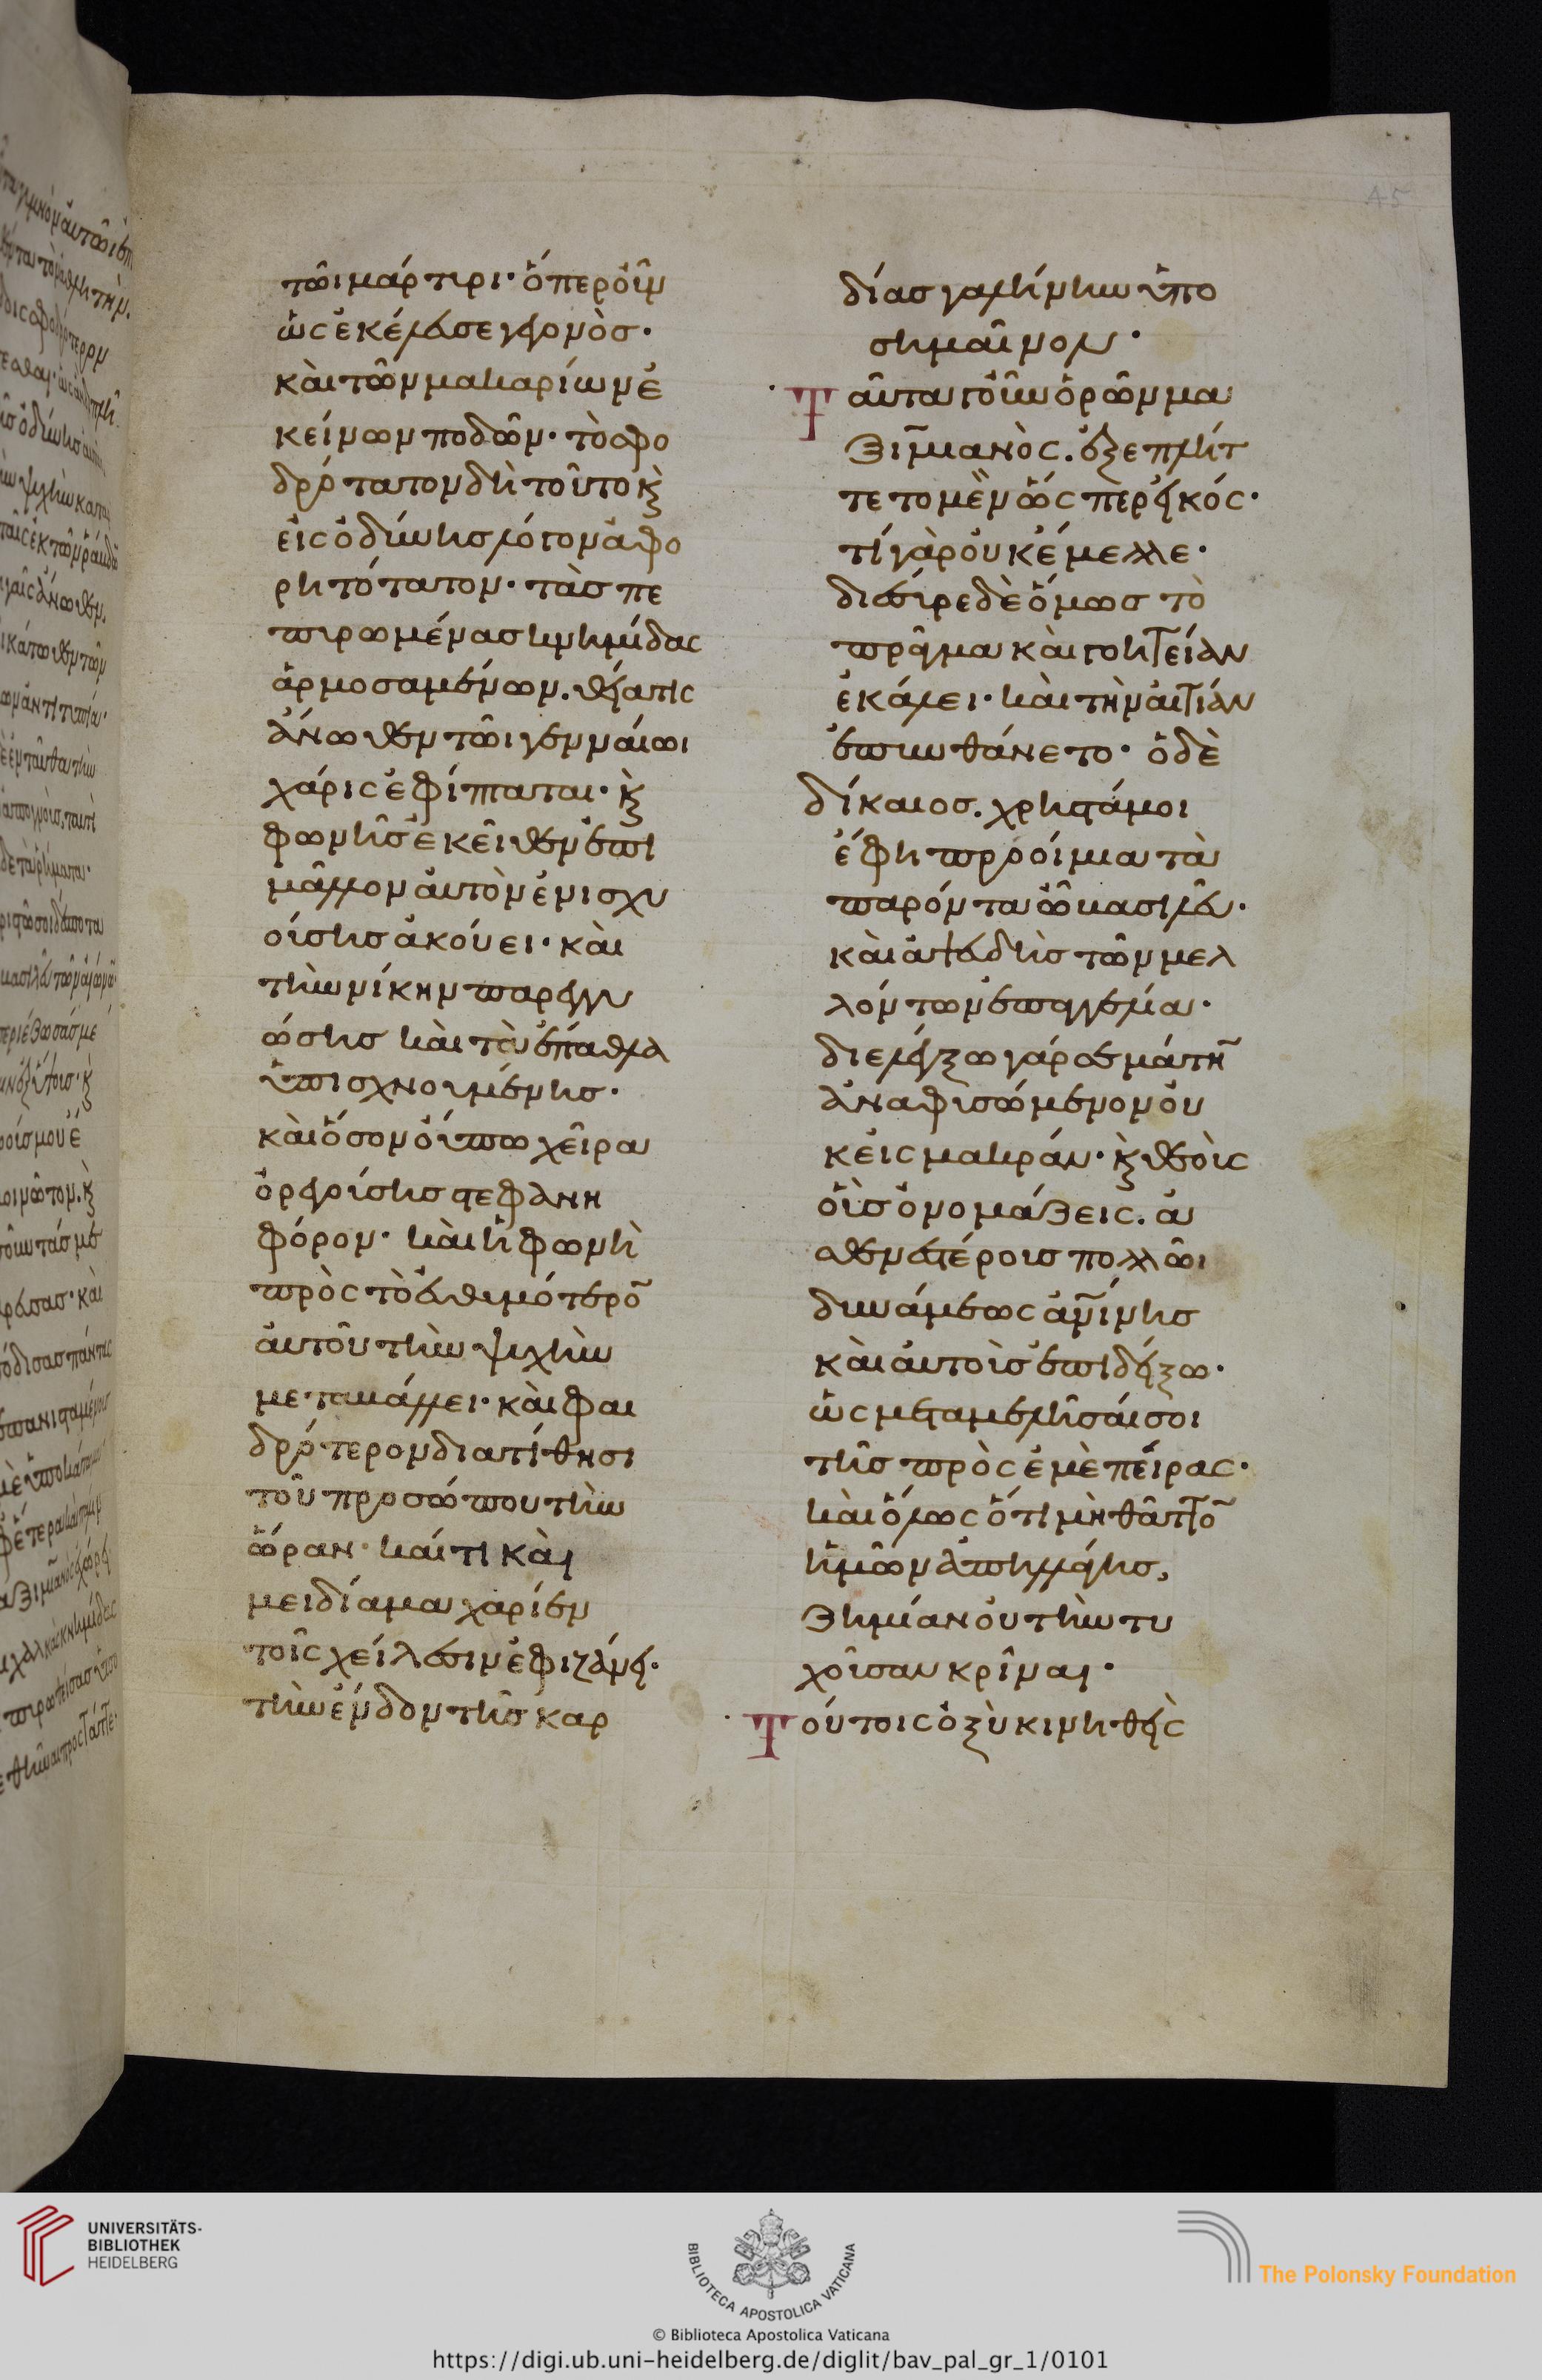 τῶι μάρτυρι· ὅπερ οὖν
ὡς ἐκέλευσε γεγονὸς·
καὶ τῶν μακαρίων ἐ
κείνων ποδῶν· τὸ σφο
δρότατον δὴ τοῦτο κ̀
εἰς ὀδύνης λόγον ἀφο
ρητότατον· τὰς πε
πυρωμένας κνημίδας
ἁρμοσαμένων. θεία τις
ἄνωθεν τῶι γενναίωι
χάρις ἐφίπταται· κ̀
φωνῆς ἐκεῖθεν ἐπὶ
μᾶλλον αὐτὸν ἐνισχυ
ούσης ἀκούει· καὶ
τὴν νίκην παρεγγυ
ώσης καὶ τὰ ἔπαθλα
ὑπισχνουμένης·
καὶ ὅσον οὔπω χεῖρα
ὀρεγούσης στεφανη
φόρον· καὶ ἡ φωνὴ
πρὸς τὸ εὐθυμότερο̅
αὐτοῦ τὴν ψυχὴν
μεταβάλλει· καὶ φαι
δρότερον διατίθησι
τοῦ προσώπου τὴν
ὥραν· καί τι καὶ
μειδίαμα χαρίεν
τοῖς χείλεσιν ἐφιζάνει·
τὴν ἔνδον τῆς καρ
δίας γαλήνην ὑπο
σημαῖνον·
Ταῦτα τοίνυν ὁρῶν μα
ζιμιανὸς. ἐξεπλήτ
τετο μὲν ὥς περ εἰκός·
τί γὰρ οὐκ ἔμελλε·
διέσυρε δὲ ὅμως τὸ
πρᾶγμα καὶ γοητείαν
ἐκάλει· καὶ τὴν αἰτίαν
ἐπυνθάνετο· ὁ δὲ
δίκαιος. χρηστά μοι
ἔφη προοίμια τὰ
παρόντα ὦ βασιλεῦ·
καὶ ἀψευδὴς τῶν μελ
λόντων ἐπαγγελία·
διελέγξω γάρ σε μάτη̅
ἀναφυσώμενον οὐ
κ εἰς μακράν· κ̀ θεοῖς
οἷς ὀνομάζεις. ἀ
σθενεστέροις πολλῶι
δυνάμεως ἀν̅ίνης
καὶ αὐτοῖς ἐπιδείξω·
ὡς μεταμελῆσαί σοι
τῆς πρὸς ἐμὲ πείρας·
καὶ ὅλως ὅτι μὴ θᾶττο̅
ἡμῶν ἀπηλλάγης,
ζημίαν οὐ τὴν τυ
χοῦσαν κρῖναι·
Τούτοις ὀξὺ κινηθεὶς
45
UNIVERSITÄTS-
BIBLIOTHEK
HEIDELBERG
BIBLIOTECA APOSTOLICA VATICANA
The Polonsky Foundation
© Biblioteca Apostolica Vaticana
https://digi.ub.uni-heidelberg.de/diglit/bav_pal_gr_1/0101